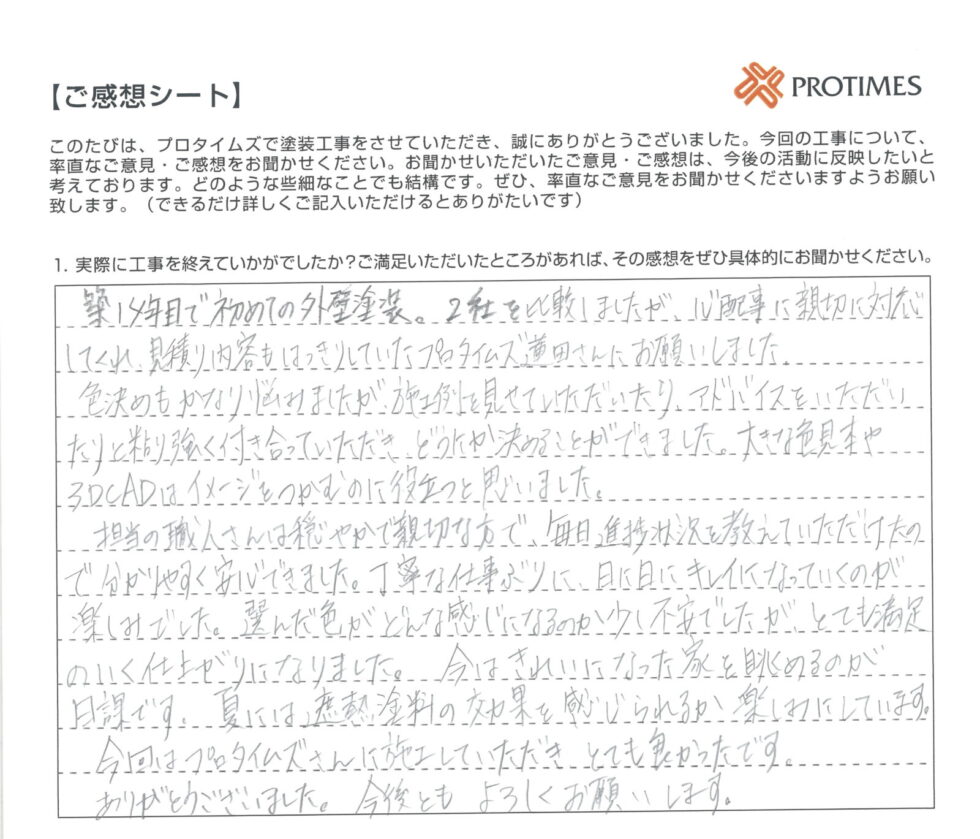 【ご感想シート】
PROTIMES
このたびは、プロタイムズで塗装工事をさせていただき、誠にありがとうございました。今回の工事について、
率直なご意見・ご感想をお聞かせください。お聞かせいただいたご意見・ご感想は、今後の活動に反映したいと
考えております。どのような些細なことでも結構です。ぜひ、率直なご意見をお聞かせくださいますようお願い
致します。（できるだけ詳しくご記入いただけるとありがたいです）
1. 実際に工事を終えていかがでしたか？ご満足いただいたところがあれば、その感想をぜひ具体的にお聞かせください。
築14年目で初めての外壁塗装。2社を比較しましたが、心配事に親切に対応
してくれ、見積り内容もはっきりしていたプロタイムズ蓮田さんにお願いしました。
色決めもかなり悩みましたが、施工例を見せていただいたり、アドバイスをいただい
たりと粘り強く付き合っていただき、どうにか決めることができました。大きな色見本や
3DCADはイメージをつかむのに役立つと思いました。
担当の職人さんは穏やかで親切な方で、毎日進捗状況を教えていただけたの
で分かりやすく安心できました。丁寧な仕事ぶりに、日に日にキレイになっていくのが
楽しみでした。選んだ色がどんな感じになるのか少し不安でしたが、とても満足
のいく仕上がりになりました。今はきれいになった家を眺めるのが
日課です。夏には遮熱塗料の効果を感じられるか楽しみにしています。
今回はプロタイムズさんに施工していただきとても良かったです。
ありがとうございました。今後ともよろしくお願いします。